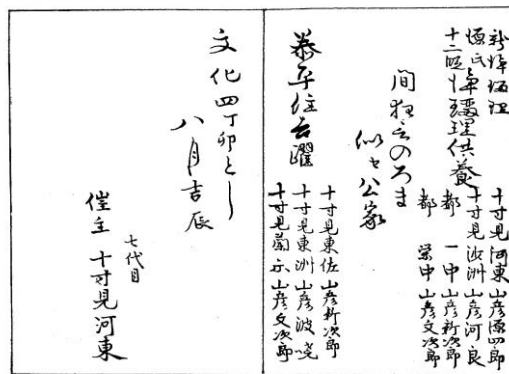 源氏
十二段 浄瑠璃供養
十寸見河東 山彦源四郎
十寸見沙洲 山彦河良
都 一中 山彦新次郎
都 栄中 山彦文次郎
間狂言のろま
似セ公家
泰平住吉躍
十寸見東佐 山彦新次郎
十寸見東洲 山彦波暁
十寸見蘭示 山彦文次郎
文化四丁卯とし
八月吉辰
七代目
催主 十寸見河東